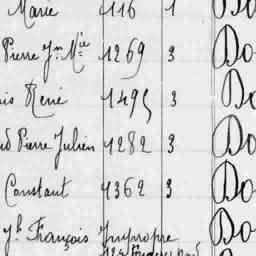 Marie 4116 1 Do
Pierre Jn Mie 4269 3 Do
is René 4495 3 Do
Pierre Julien 4282 3 Do
Constant 4362 3 Do
Jh François Impropre Do